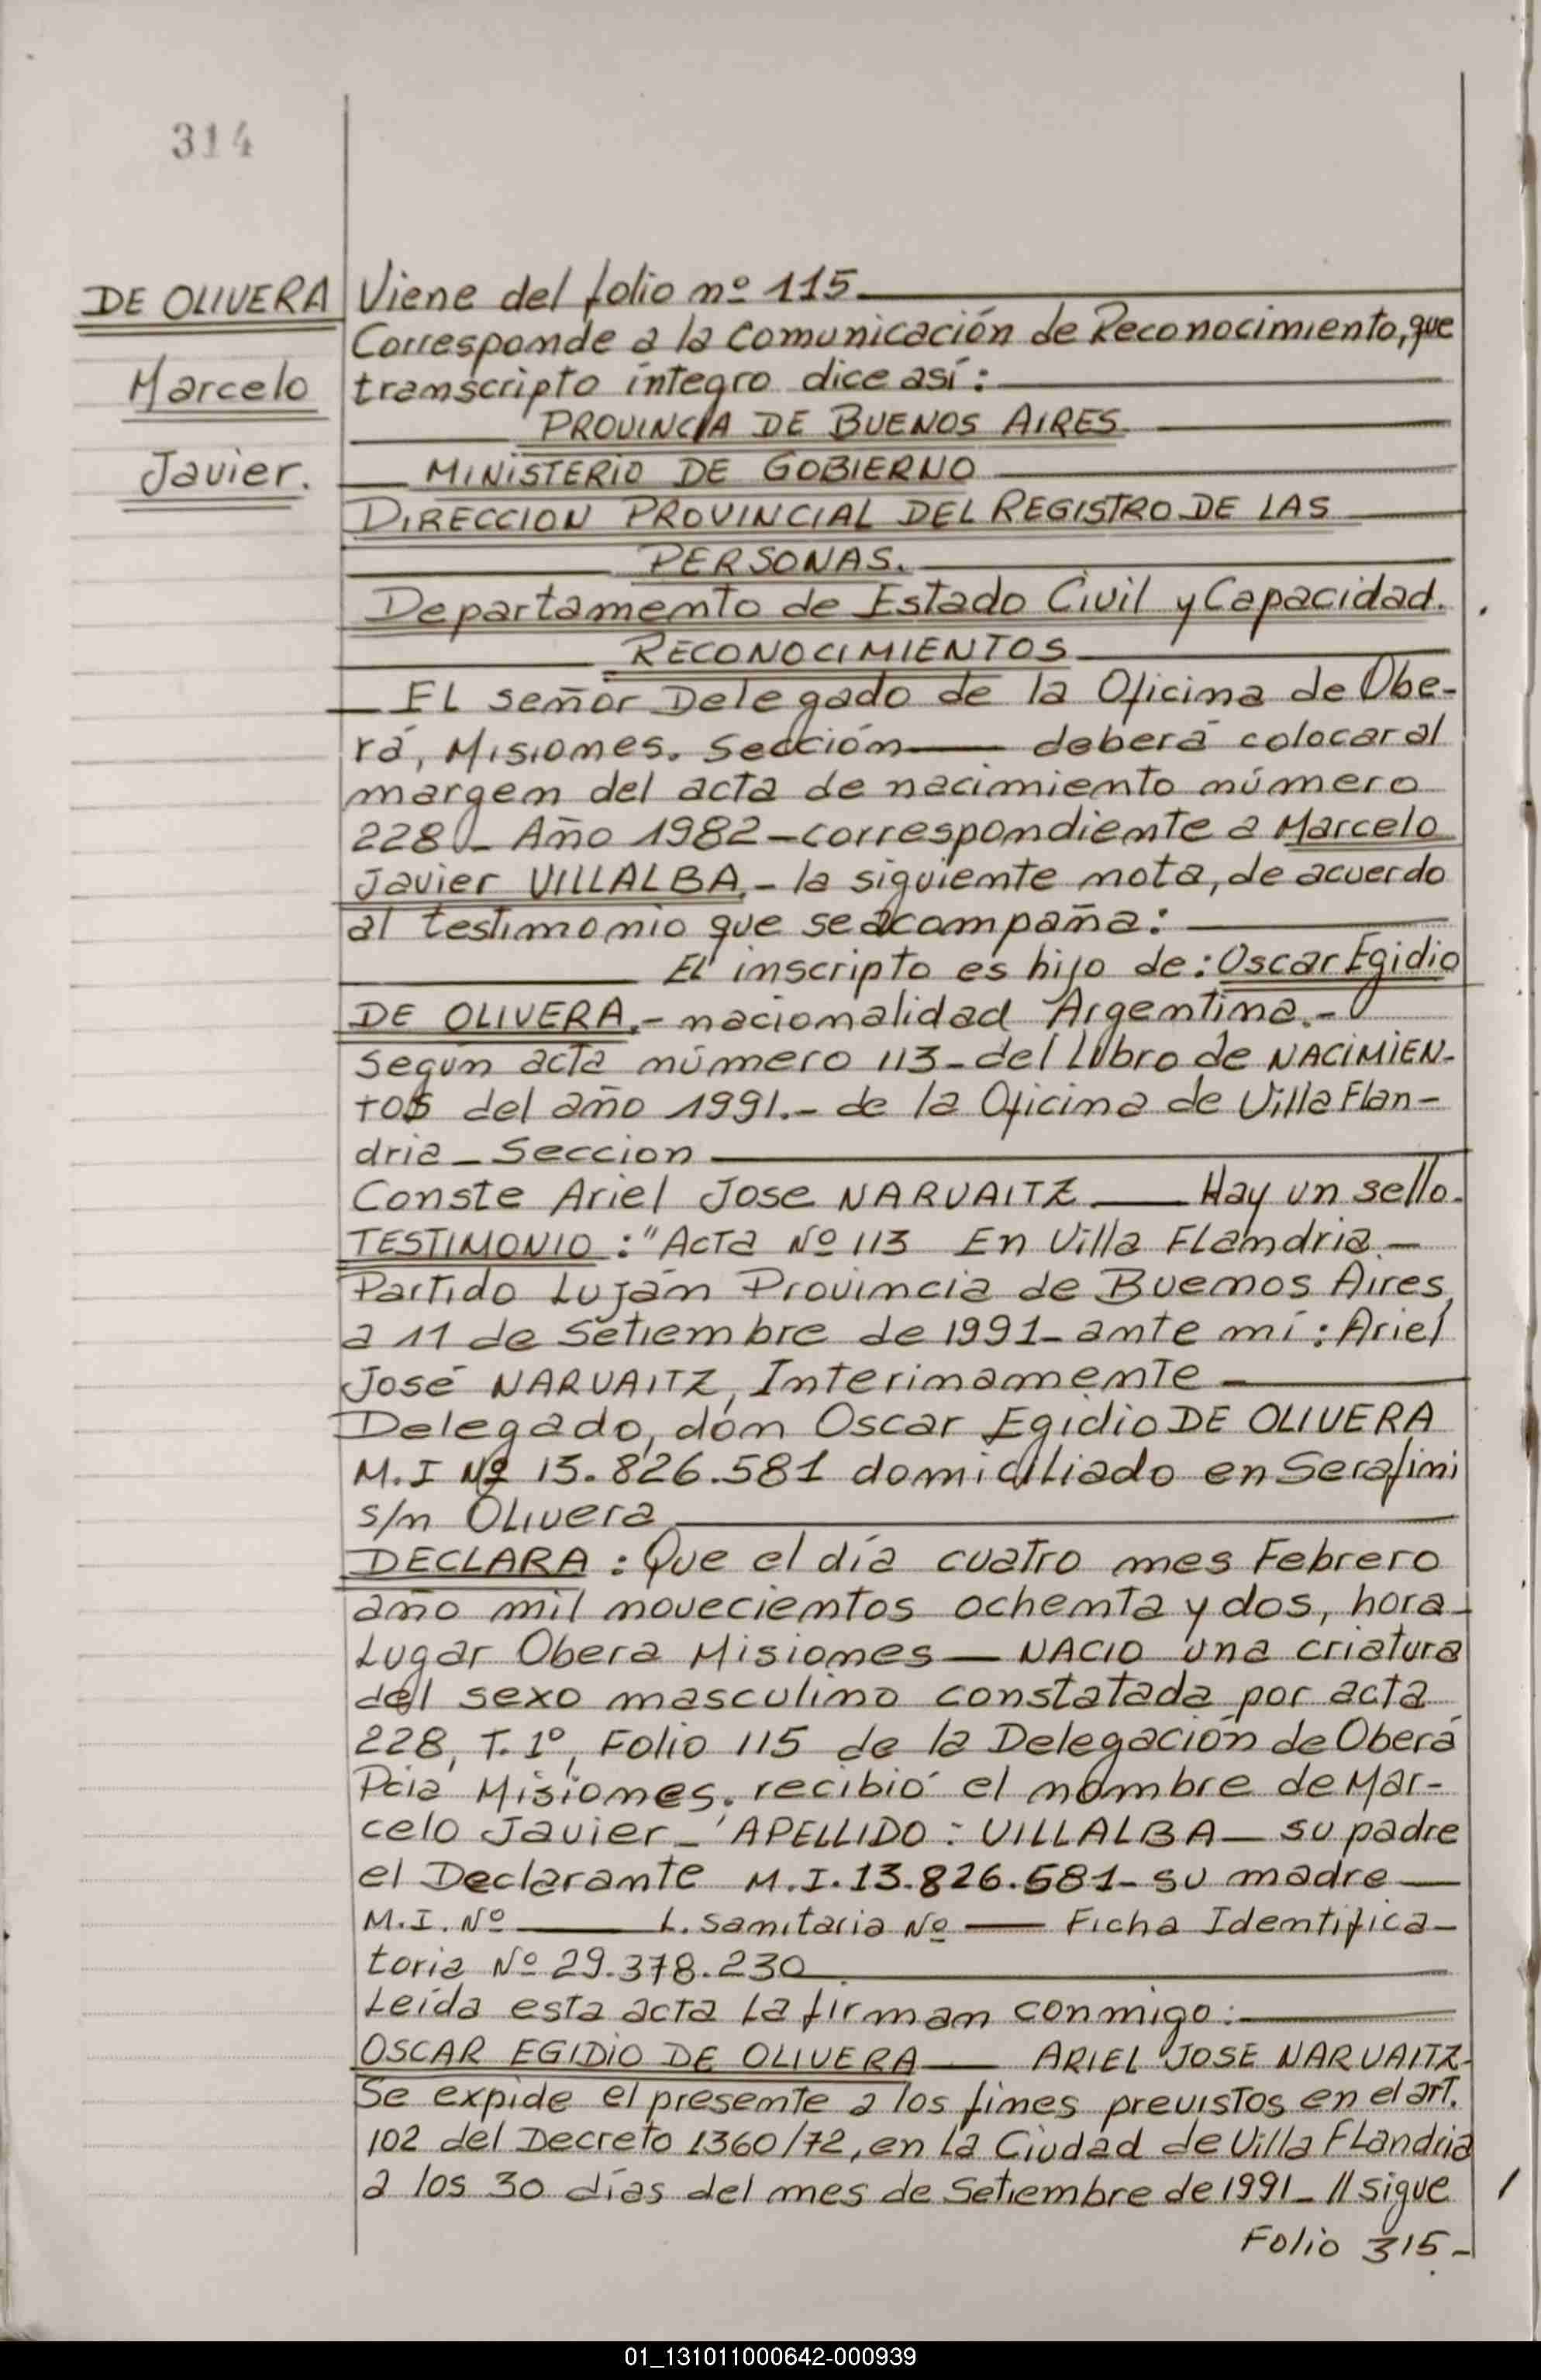 314
DE OLIVERA
Marcelo
Javier.
Viene del folio nº 115
Corresponde a la comunicación de Reconocimiento, que
transcripto íntegro dice así:
PROVINCIA DE BUENOS AIRES
MINISTERIO DE GOBIERNO
DIRECCION PROVINCIAL DEL REGISTRO DE LAS
PERSONAS.
Departamento de Estado Civil y Capacidad.
RECONOCIMIENTOS
EL señor Delegado de la Oficina de Obe-
rá, Misiones. Sección — deberá colocar al
margen del acta de nacimiento número
228 - Año 1982 - correspondiente a Marcelo
Javier VILLALBA.- la siguiente nota, de acuerdo
al testimonio que se acompaña:
El inscripto es hijo de: Oscar Egidio
DE OLIVERA.- nacionalidad Argentina.-
Según acta número 113 - del Libro de NACIMIEN-
TOS del año 1991.- de la Oficina de Villa Flan-
dria - Seccion
Conste Ariel Jose NARVAITZ — Hay un sello.
TESTIMONIO: "Acta Nº 113 En Villa Flandria.-
Partido Luján Provincia de Buenos Aires,
a 11 de Setiembre de 1991 - ante mí: Ariel
José NARVAITZ, Interinamente -
Delegado, don Oscar Egidio DE OLIVERA
M.I Nº 13.826.581 domiciliado en Serafini
s/n Olivera
DECLARA: Que el día cuatro mes Febrero
año mil novecientos ochenta y dos, hora -
Lugar Obera Misiones — NACIO una criatura
del sexo masculino constatada por acta
228, T. 1º, Folio 115 de la Delegación de Oberá
Pcia Misiones. recibió el nombre de Mar-
celo Javier - 'APELLIDO: VILLALBA — su padre
el Declarante M.I. 13.826.581 - su madre —
M.I. Nº — L. Sanitaria Nº — Ficha Identifica-
toria Nº 29.378.230
Leída esta acta la firman conmigo:
OSCAR EGIDIO DE OLIVERA — ARIEL JOSE NARVAITZ-
Se expide el presente a los fines previstos en el art.
102 del Decreto 1360/72, en la Ciudad de Villa Flandria
a los 30 días del mes de Setiembre de 1991 - // sigue
Folio 315 -
01_131011000642-000939